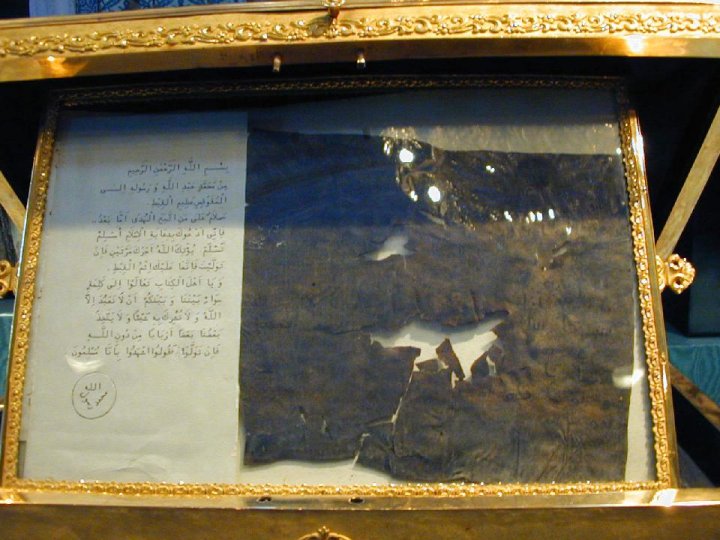 بِسْمِ اللَّهِ الرَّحْمٰنِ الرَّحِيمِ
مِنْ مُحَمَّدٍ عَبْدِ اللَّهِ وَ رَسُولِهِ إِلَى
الْمُقَوْقِسِ عَظِيمِ الْقِبْطِ.
سَلَامٌ عَلَى مَنِ اتَّبَعَ الْهُدَى أَمَّا بَعْدُ..
فَإِنِّي أَدْعُوكَ بِدِعَايَةِ الْإِسْلَامِ أَسْلِمْ
تَسْلَمْ يُؤْتِكَ اللَّهُ أَجْرَكَ مَرَّتَيْنِ فَإِنْ
تَوَلَّيْتَ فَإِنَّمَا عَلَيْكَ إِثْمُ الْقِبْطِ.
وَ يَا أَهْلَ الْكِتَابِ تَعَالَوْا إِلَى كَلِمَةٍ
سَوَاءٍ بَيْنَنَا وَ بَيْنَكُمْ أَنْ لَا نَعْبُدَ إِلَّا
اللَّهَ وَ لَا نُشْرِكَ بِهِ شَيْئًا وَ لَا يَتَّخِذَ
بَعْضُنَا بَعْضًا أَرْبَابًا مِنْ دُونِ اللَّهِ
فَإِنْ تَوَلَّوْا فَقُولُوا اشْهَدُوا بِأَنَّا مُسْلِمُونَ
الله
رسول
محمد